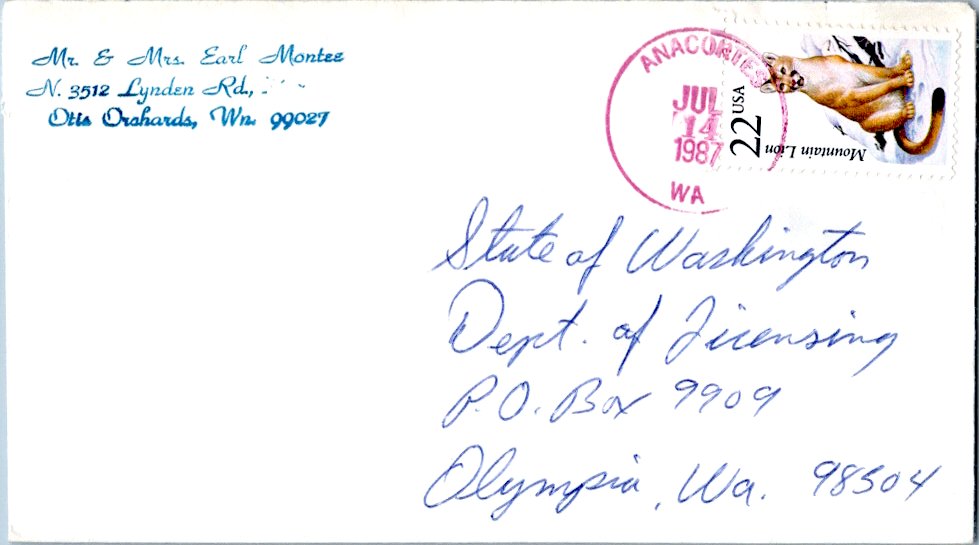 Mr. & Mrs. Earl Montee
N. 3512 Lynden Rd.,
Otis Orchards, Wn. 99027
ANACORTES
JUL
14
1987
WA
22 USA
Mountain Lion
State of Washington
Dept. of Licensing
P.O. Box 9909
Olympia, Wa. 98504